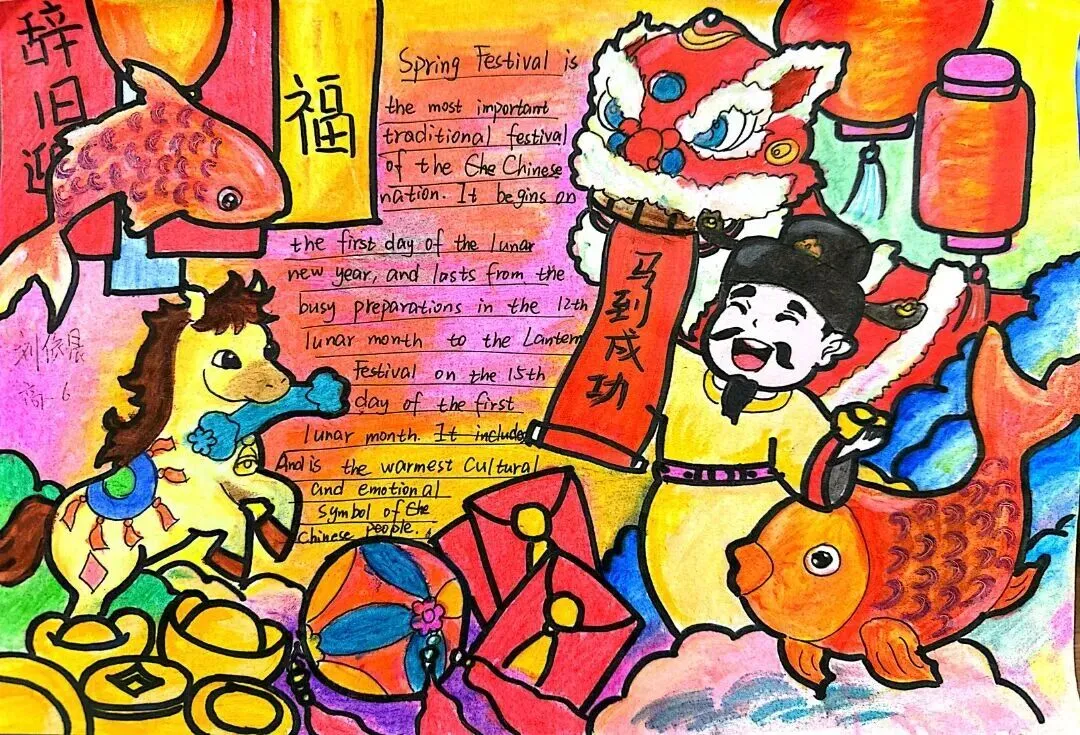 辞旧迎
福
Spring Festival is
the most important
traditional festival
of the the Chinese
nation. It begins on
the first day of the lunar
new year, and lasts from the
busy preparations in the 12th
lunar month to the Lantern
Festival on the 15th
day of the first
lunar month. It includes
And is the warmest Cultural
and emotional
symbol of the
Chinese people.
马到成功